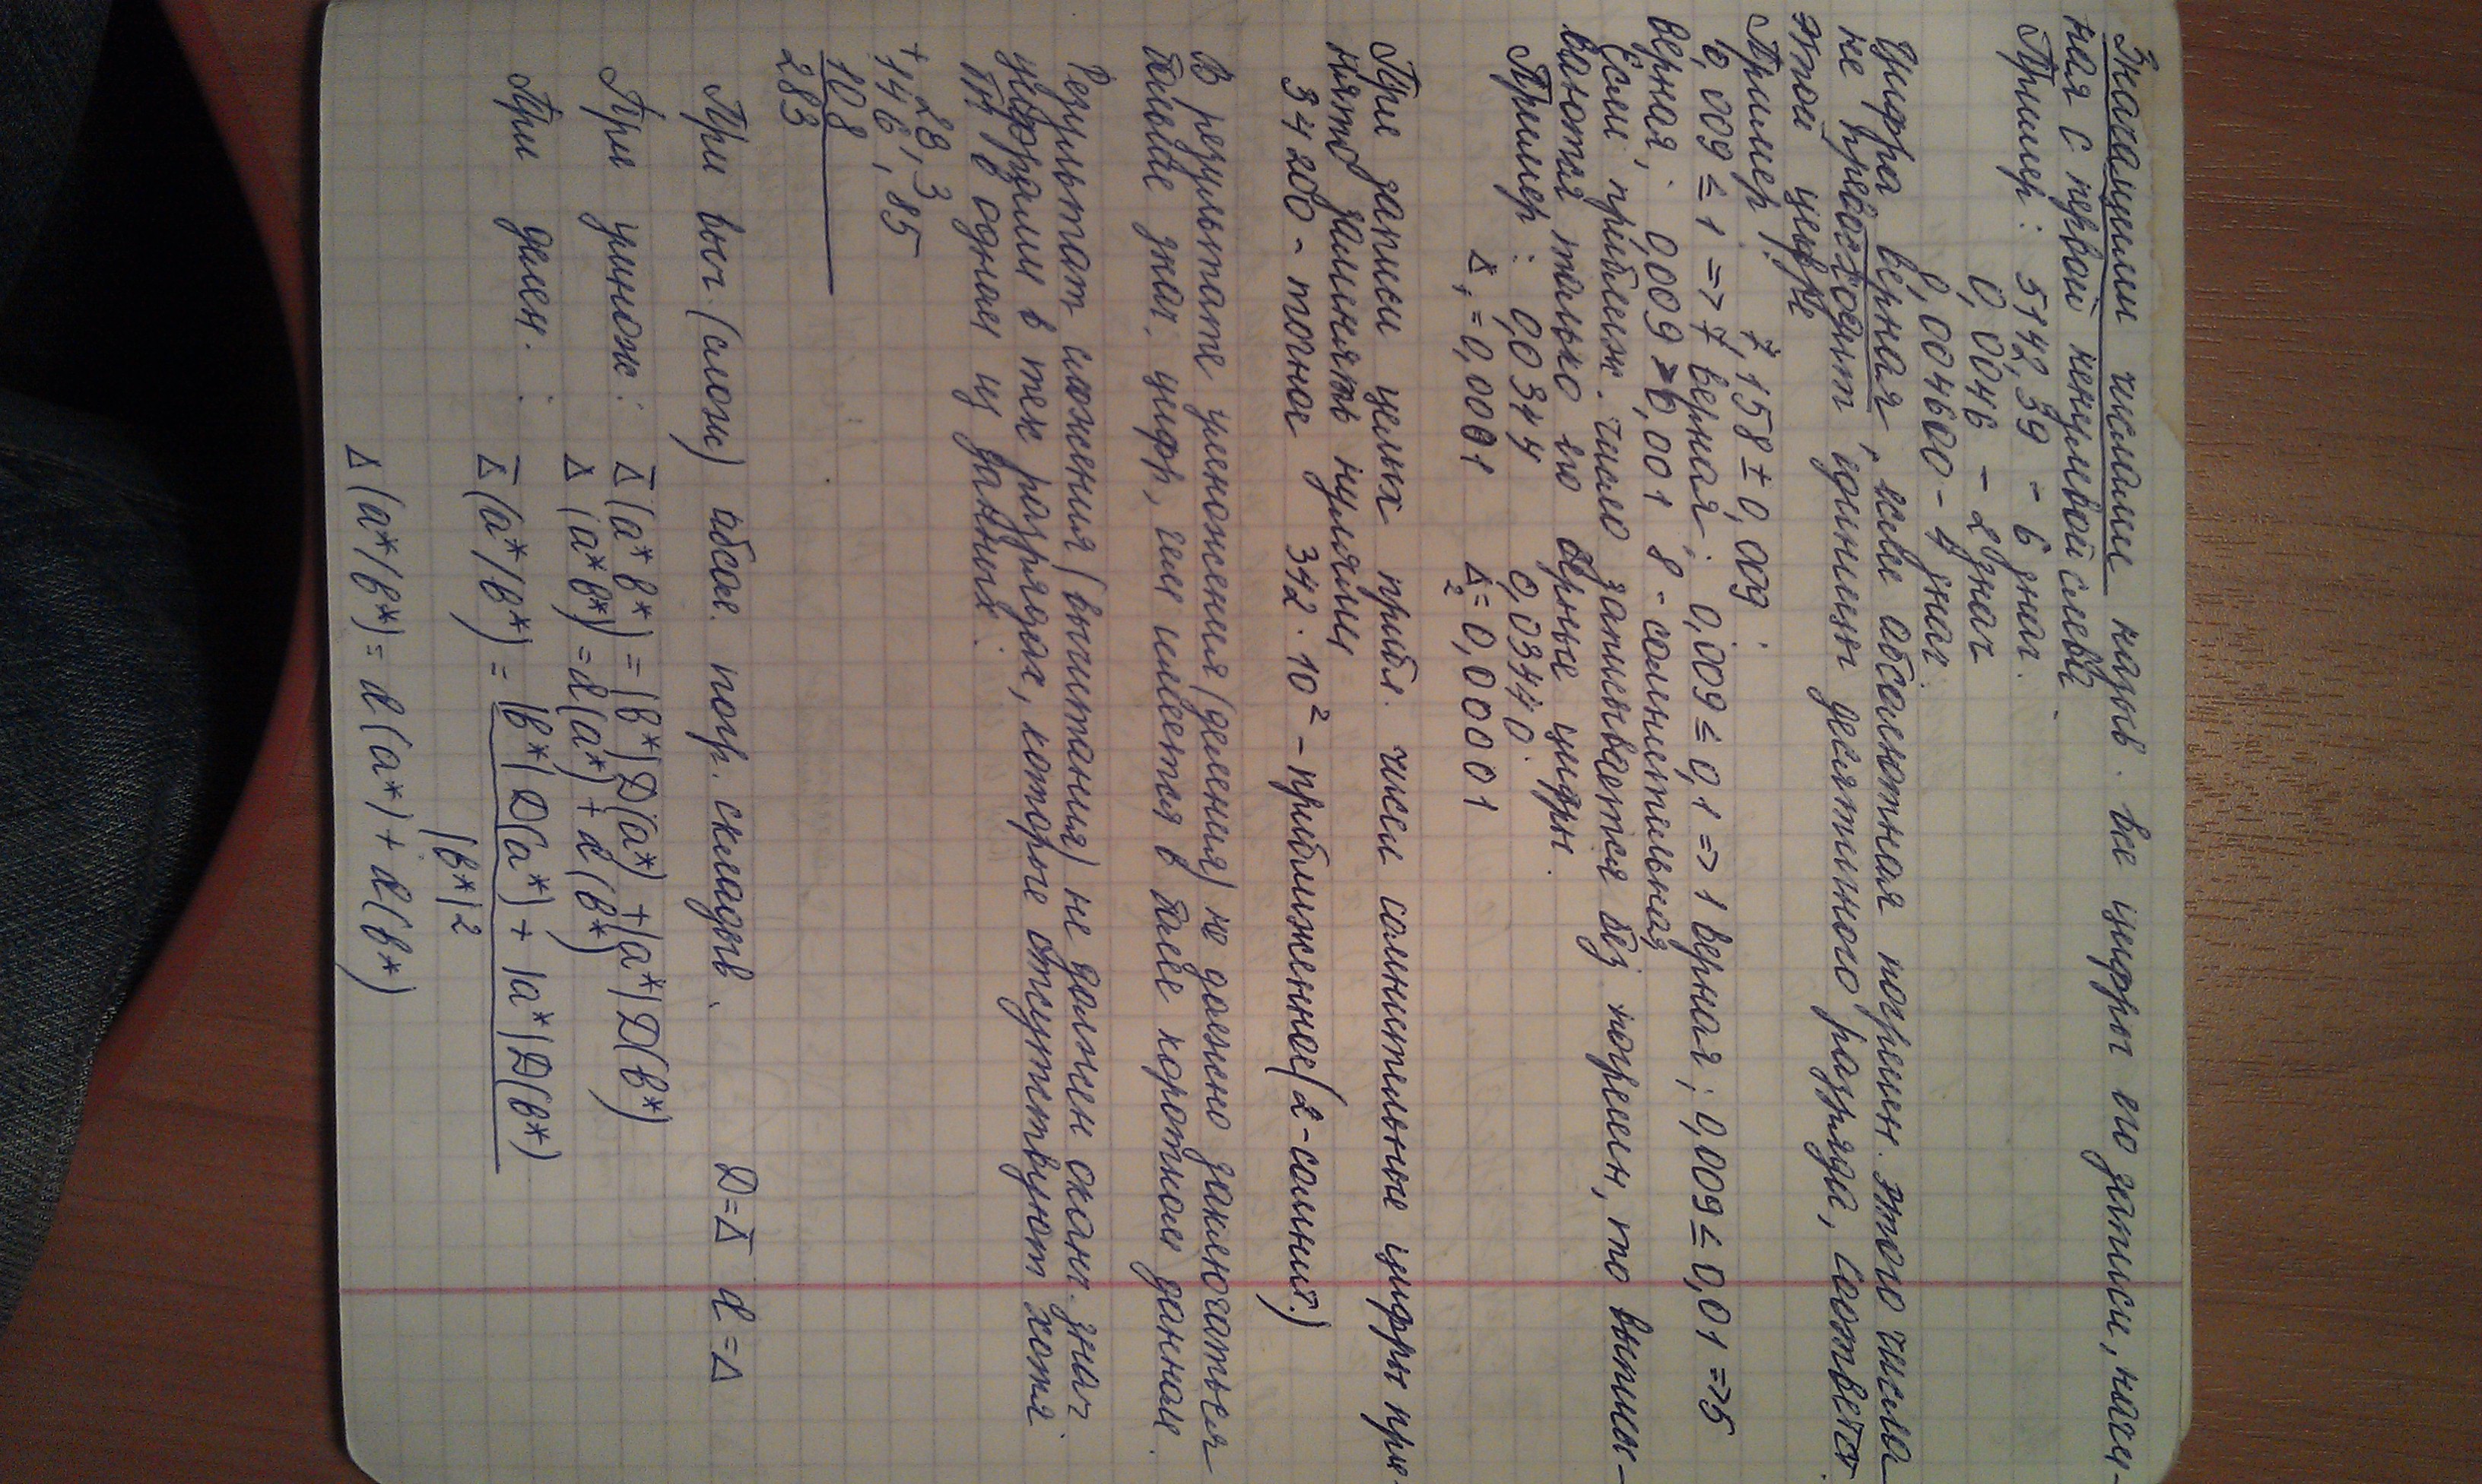 Значащими числами назыв. все цифры по записи, начи-
ная с первой ненулевой слева.
Пример: 5142,39 - 6 знач.
0,0046 - 2 знач
0,004600 - 4 знач.
Цифра верная, если абсолютная погрешн. этого числа
не превосходит единицы десятичного разряда, соответств.
этой цифре
Пример: 7,158 ± 0,009.
0,009 ≤ 1 => 7 верная; 0,009 ≤ 0,1 => 1 верная; 0,009 ≤ 0,01 => 5
верная; 0,009 > 0,001 8 - сомнительная
Если приближ. число записывается без погрешн, то выписы-
ваются только его верные цифры.
Пример: 0,0344 0,03440.
Δ₁ = 0,0001 Δ₂ = 0,00001
При записи целых прибл. чисел сомнительные цифры при-
нято заменять нулями
34200 - точное 342·10² - приближенное (2-сомнит.)
В результате умножения (деления) не должно заключаться
больше знач. цифр, чем имеется в более коротком данном.
Результат сложения (вычитания) не должен оканч. знач
цифрами в тех разрядах, которые отсутствуют хотя
бы в одном из данных.
28,3
+ 146,85
108
283
При выч. (слож) абсол. погр. складыв. D = Δ̄ d = Δ
При умнож: Δ̄(a*b*) = |b*|D(a*) + |a*|D(b*)
Δ(a*b*) = d(a*) + d(b*)
При делен.: Δ̄(a*/b*) = |b*|D(a*) + |a*|D(b*)
|b*|²
Δ(a*/b*) = d(a*) + d(b*)